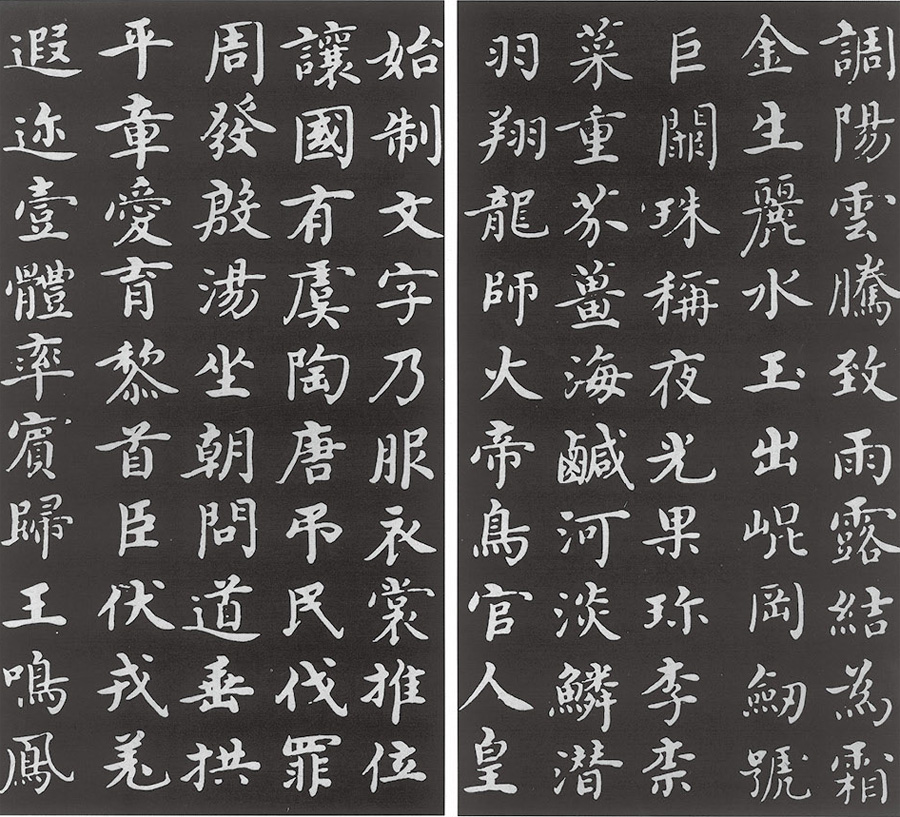 調陽雲騰致雨露結為霜
金生麗水玉出崐岡劒號
巨闕珠稱夜光果珎李柰
菜重芥薑海鹹河淡鱗潛
羽翔龍師火帝鳥官人皇
始制文字乃服衣裳推位
讓國有虞陶唐吊民伐罪
周發殷湯坐朝問道垂拱
平章愛育黎首臣伏戎羌
遐迩壹體率賓歸王鳴鳳